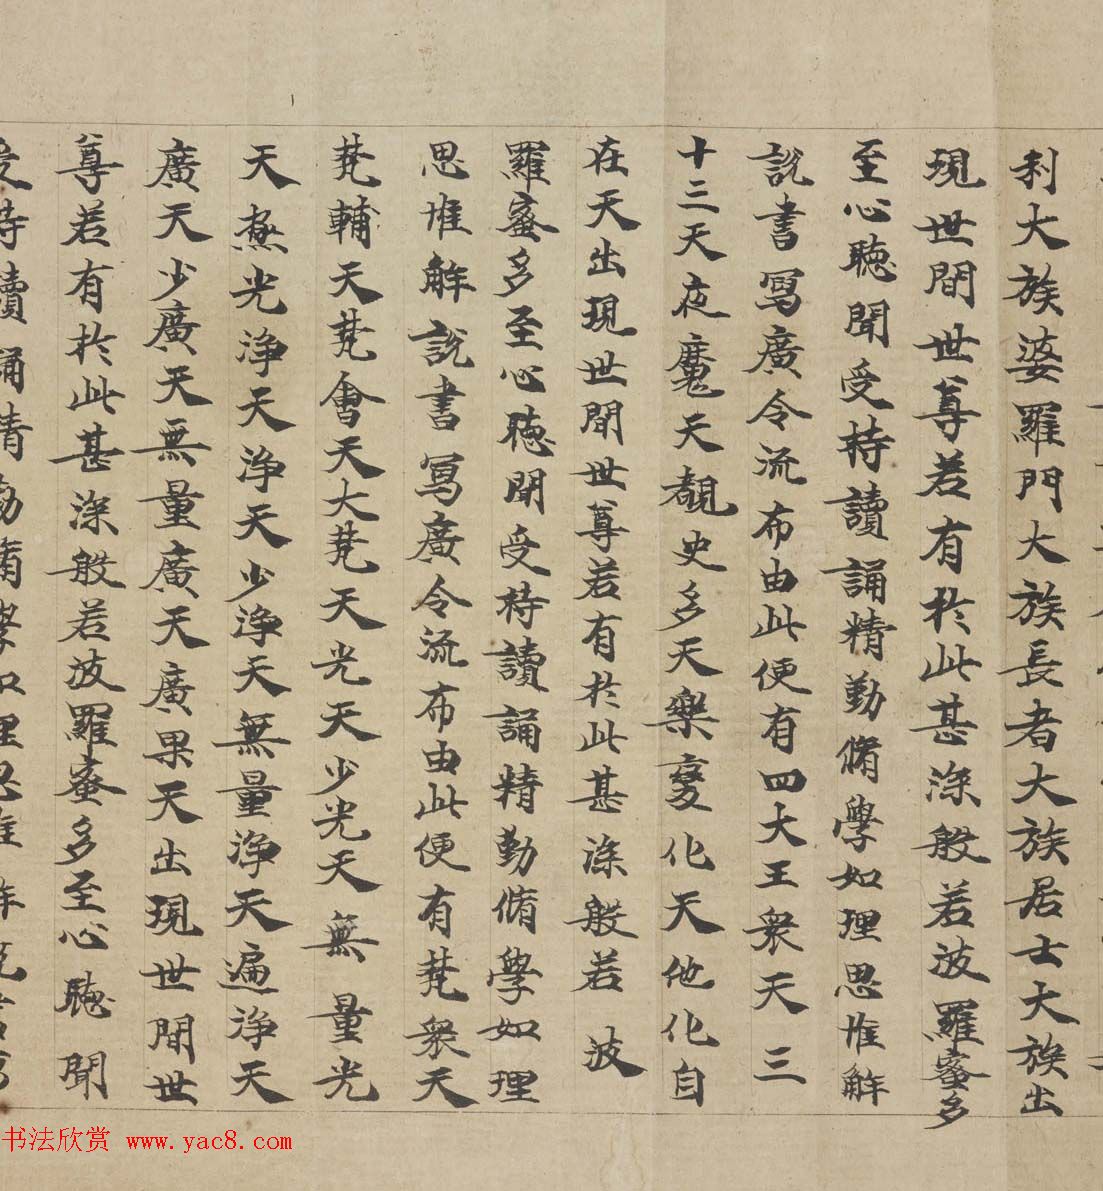 利大族婆羅門大族長者大族居士大族出
現世間世尊若有於此甚深般若波羅蜜多
至心聽聞受持讀誦精勤脩學如理思惟解
說書寫廣令流布由此便有四大王衆天三
十三天夜魔天覩史多天樂變化天他化自
在天出現世間世尊若有於此甚深般若波
羅蜜多至心聽聞受持讀誦精勤脩學如理
思惟解說書寫廣令流布由此便有梵衆天
梵輔天梵會天大梵天光天少光天無量光
天極光淨天淨天少淨天無量淨天遍淨天
廣天少廣天無量廣天廣果天出現世間世
尊若有於此甚深般若波羅蜜多至心聽聞
受持讀誦精勤脩學如理思惟解說書寫
书法欣赏 www.yac8.com